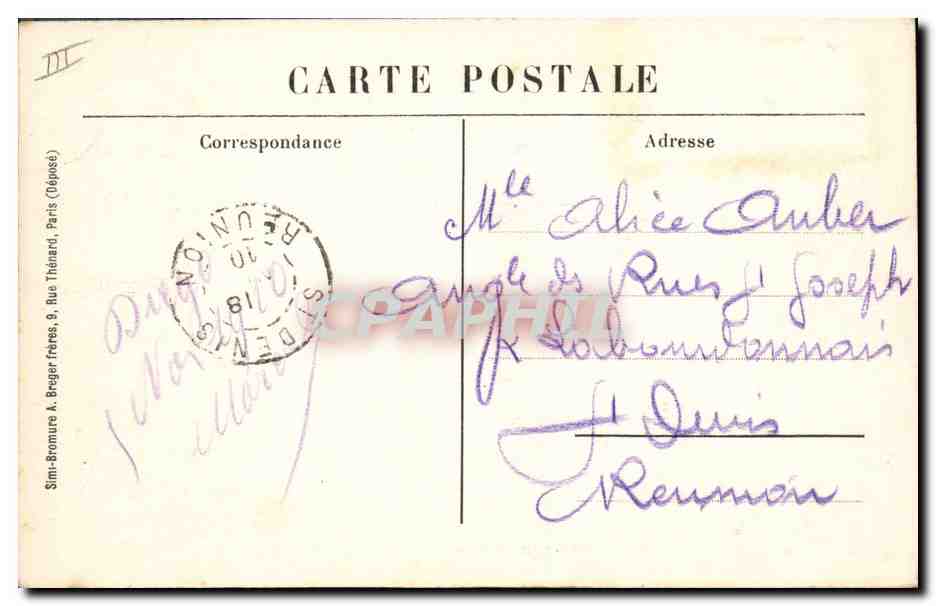 III
CARTE POSTALE
Correspondance
Adresse
Simi-Bromure A. Breger frères, 9, Rue Thénard, Paris (Déposé)
Mlle Alice Auber
Angle des Rues St Joseph
& Labourdonnais
St Denis
Reunion
ST DENIS
REUNION
10
18
Diego
CPAPHIL